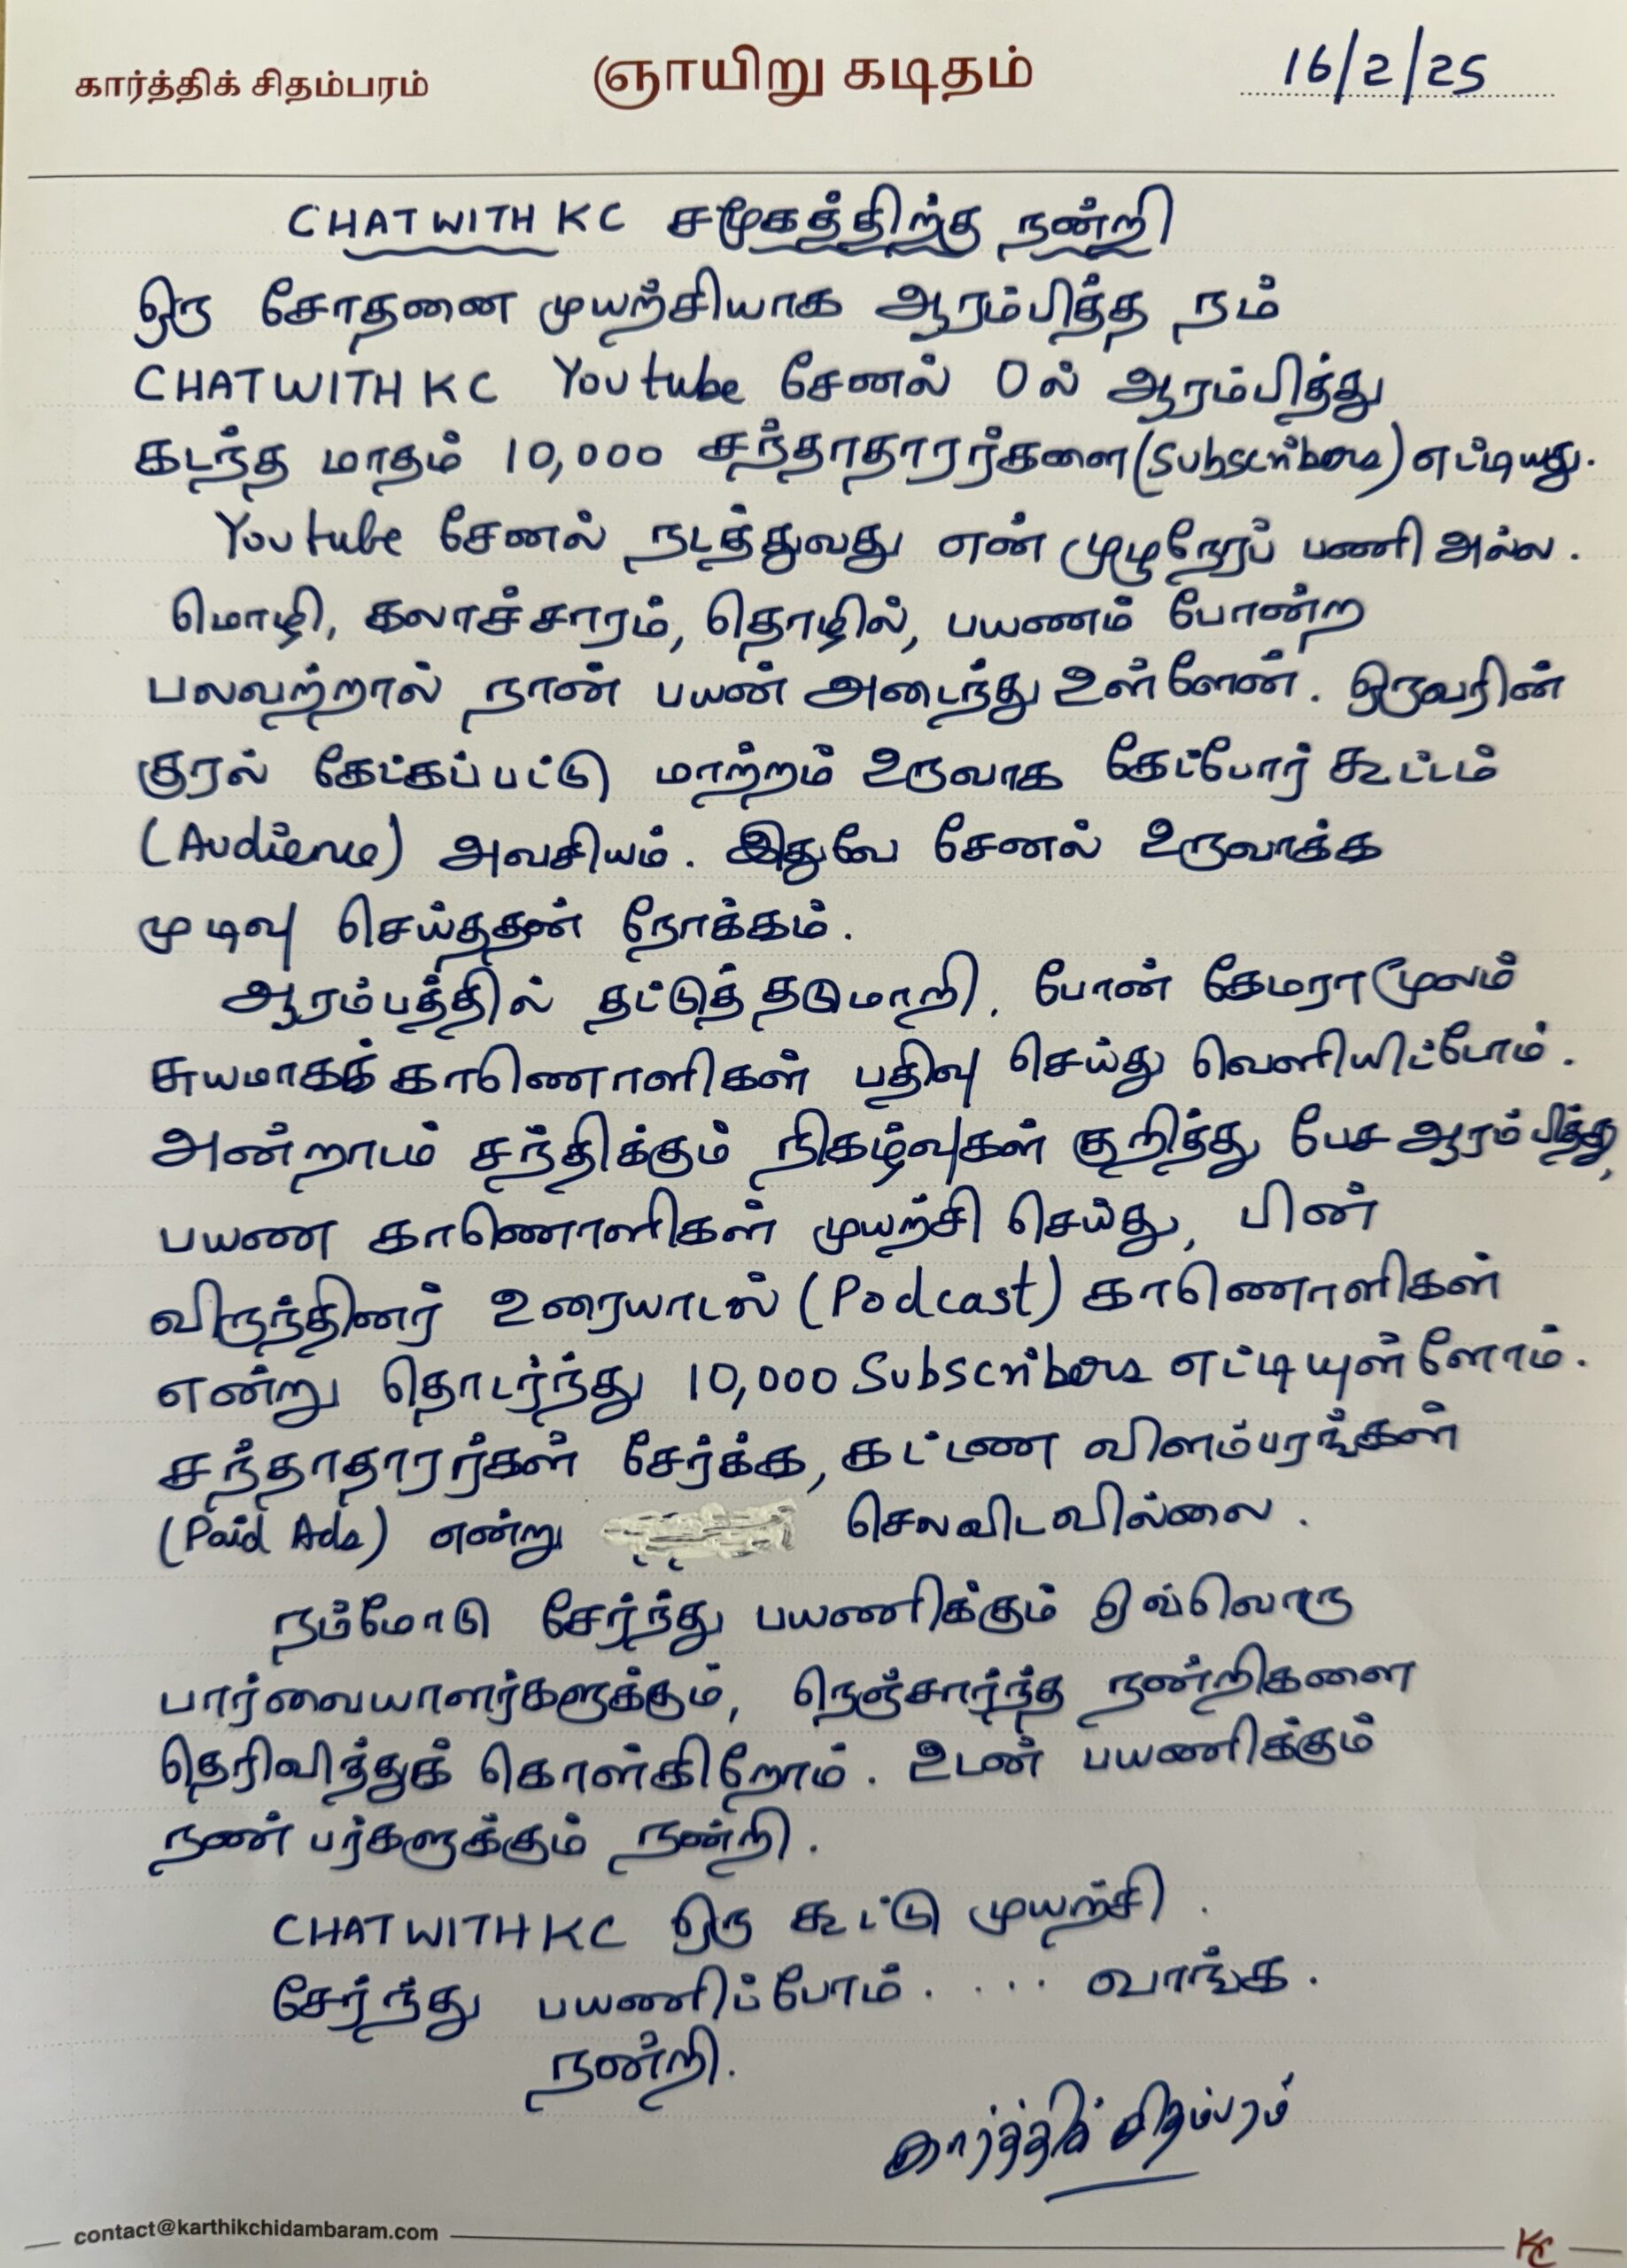 கார்த்திக் சிதம்பரம் ஞாயிறு கடிதம் 16/2/25
CHATWITHKC சமூகத்திற்கு நன்றி
ஒரு சோதனை முயற்சியாக ஆரம்பித்த நம்
CHATWITHKC Youtube சேனல் 0ல் ஆரம்பித்து
கடந்த மாதம் 10,000 சந்தாதாரர்களை (Subscribers) எட்டியது.
Youtube சேனல் நடத்துவது என் முழுநேரப் பணி அல்ல.
மொழி, கலாச்சாரம், தொழில், பயணம் போன்ற
பலவற்றால் நான் பயன் அடைந்து உள்ளேன். ஒருவரின்
குரல் கேட்கப்பட்டு மாற்றம் உருவாக கேட்போர் கூட்டம்
(Audience) அவசியம். இதுவே சேனல் உருவாக்க
முடிவு செய்ததன் நோக்கம்.
ஆரம்பத்தில் தட்டுத் தடுமாறி, போன் கேமரா மூலம்
சுயமாகக் காணொளிகள் பதிவு செய்து வெளியிட்டோம்.
அன்றாடம் சந்திக்கும் நிகழ்வுகள் குறித்து பேச ஆரம்பித்து,
பயண காணொளிகள் முயற்சி செய்து, பின்
விருந்தினர் உரையாடல் (Podcast) காணொளிகள்
என்று தொடர்ந்து 10,000 Subscribers எட்டியுள்ளோம்.
சந்தாதாரர்கள் சேர்க்க, கட்டண விளம்பரங்கள்
(Paid Ads) என்று செலவிடவில்லை.
நம்மோடு சேர்ந்து பயணிக்கும் ஒவ்வொரு
பார்வையாளர்களுக்கும், நெஞ்சார்ந்த நன்றிகளை
தெரிவித்துக் கொள்கிறோம். உடன் பயணிக்கும்
நண்பர்களுக்கும் நன்றி.
CHATWITHKC ஒரு கூட்டு முயற்சி.
சேர்ந்து பயணிப்போம். ... வாங்க.
நன்றி.
கார்த்திக் சிதம்பரம்
contact@karthikchidambaram.com
KC